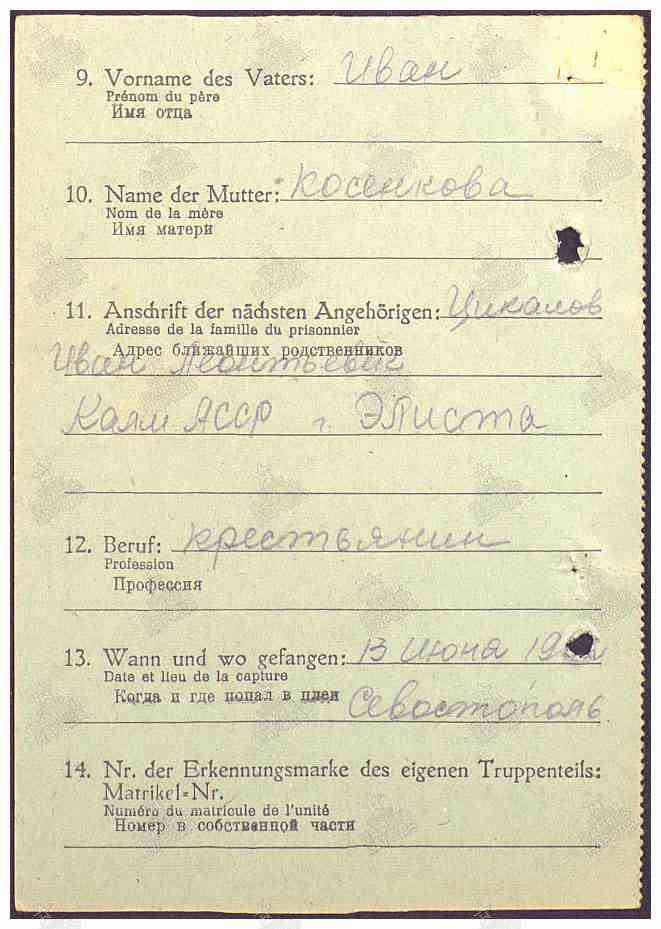 9. Vorname des Vaters: Иван
Prénom du père
Имя отца
10. Name der Mutter: Косенкова
Nom de la mère
Имя матери
11. Anschrift der nächsten Angehörigen: Цикалов
Adresse de la famille du prisonnier
Адрес ближайших родственников
Иван Леонтьевич
Калм АССР г. Элиста
12. Beruf: крестьянин
Profession
Профессия
13. Wann und wo gefangen: 13 июня
Date et lieu de la capture
Когда и где попал в плен Севастополь
14. Nr. der Erkennungsmarke des eigenen Truppenteils:
Matrikel=Nr.
Numéro du matricule de l'unité
Номер в собственной части